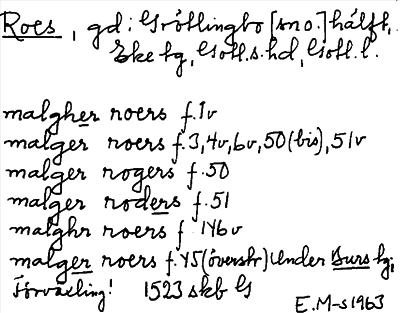 Roes, gd: Gröttlingbo [sno.] hälft,
Eke hg, Gotl.s.hd, Gotl. l.
malgher roers f.1v
malger roers f.3,4v,6v,50(bis),51v
malger rogers f.50
malger roders f.51
malghr roers f 146v
malger roers f.45(överskr) under Burs hg;
Förväxling! 1523 skb G
E.M-s 1963